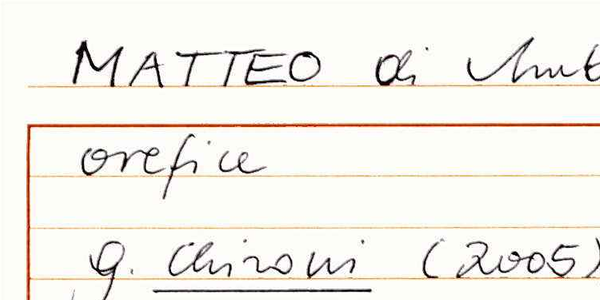 MATTEO di
orefice
G. Chironi (2005)